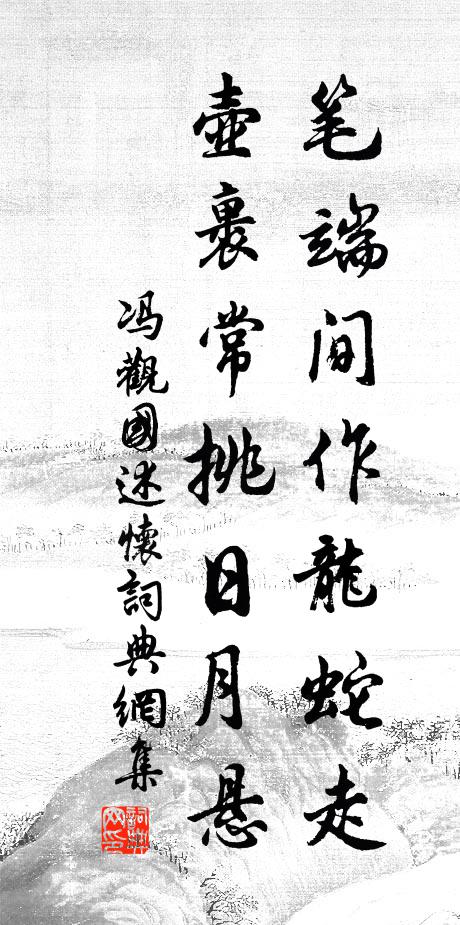 笔端间作龍蛇走
壺裏常挑日月悬
冯觀國述懷詞典網集
詞典网印